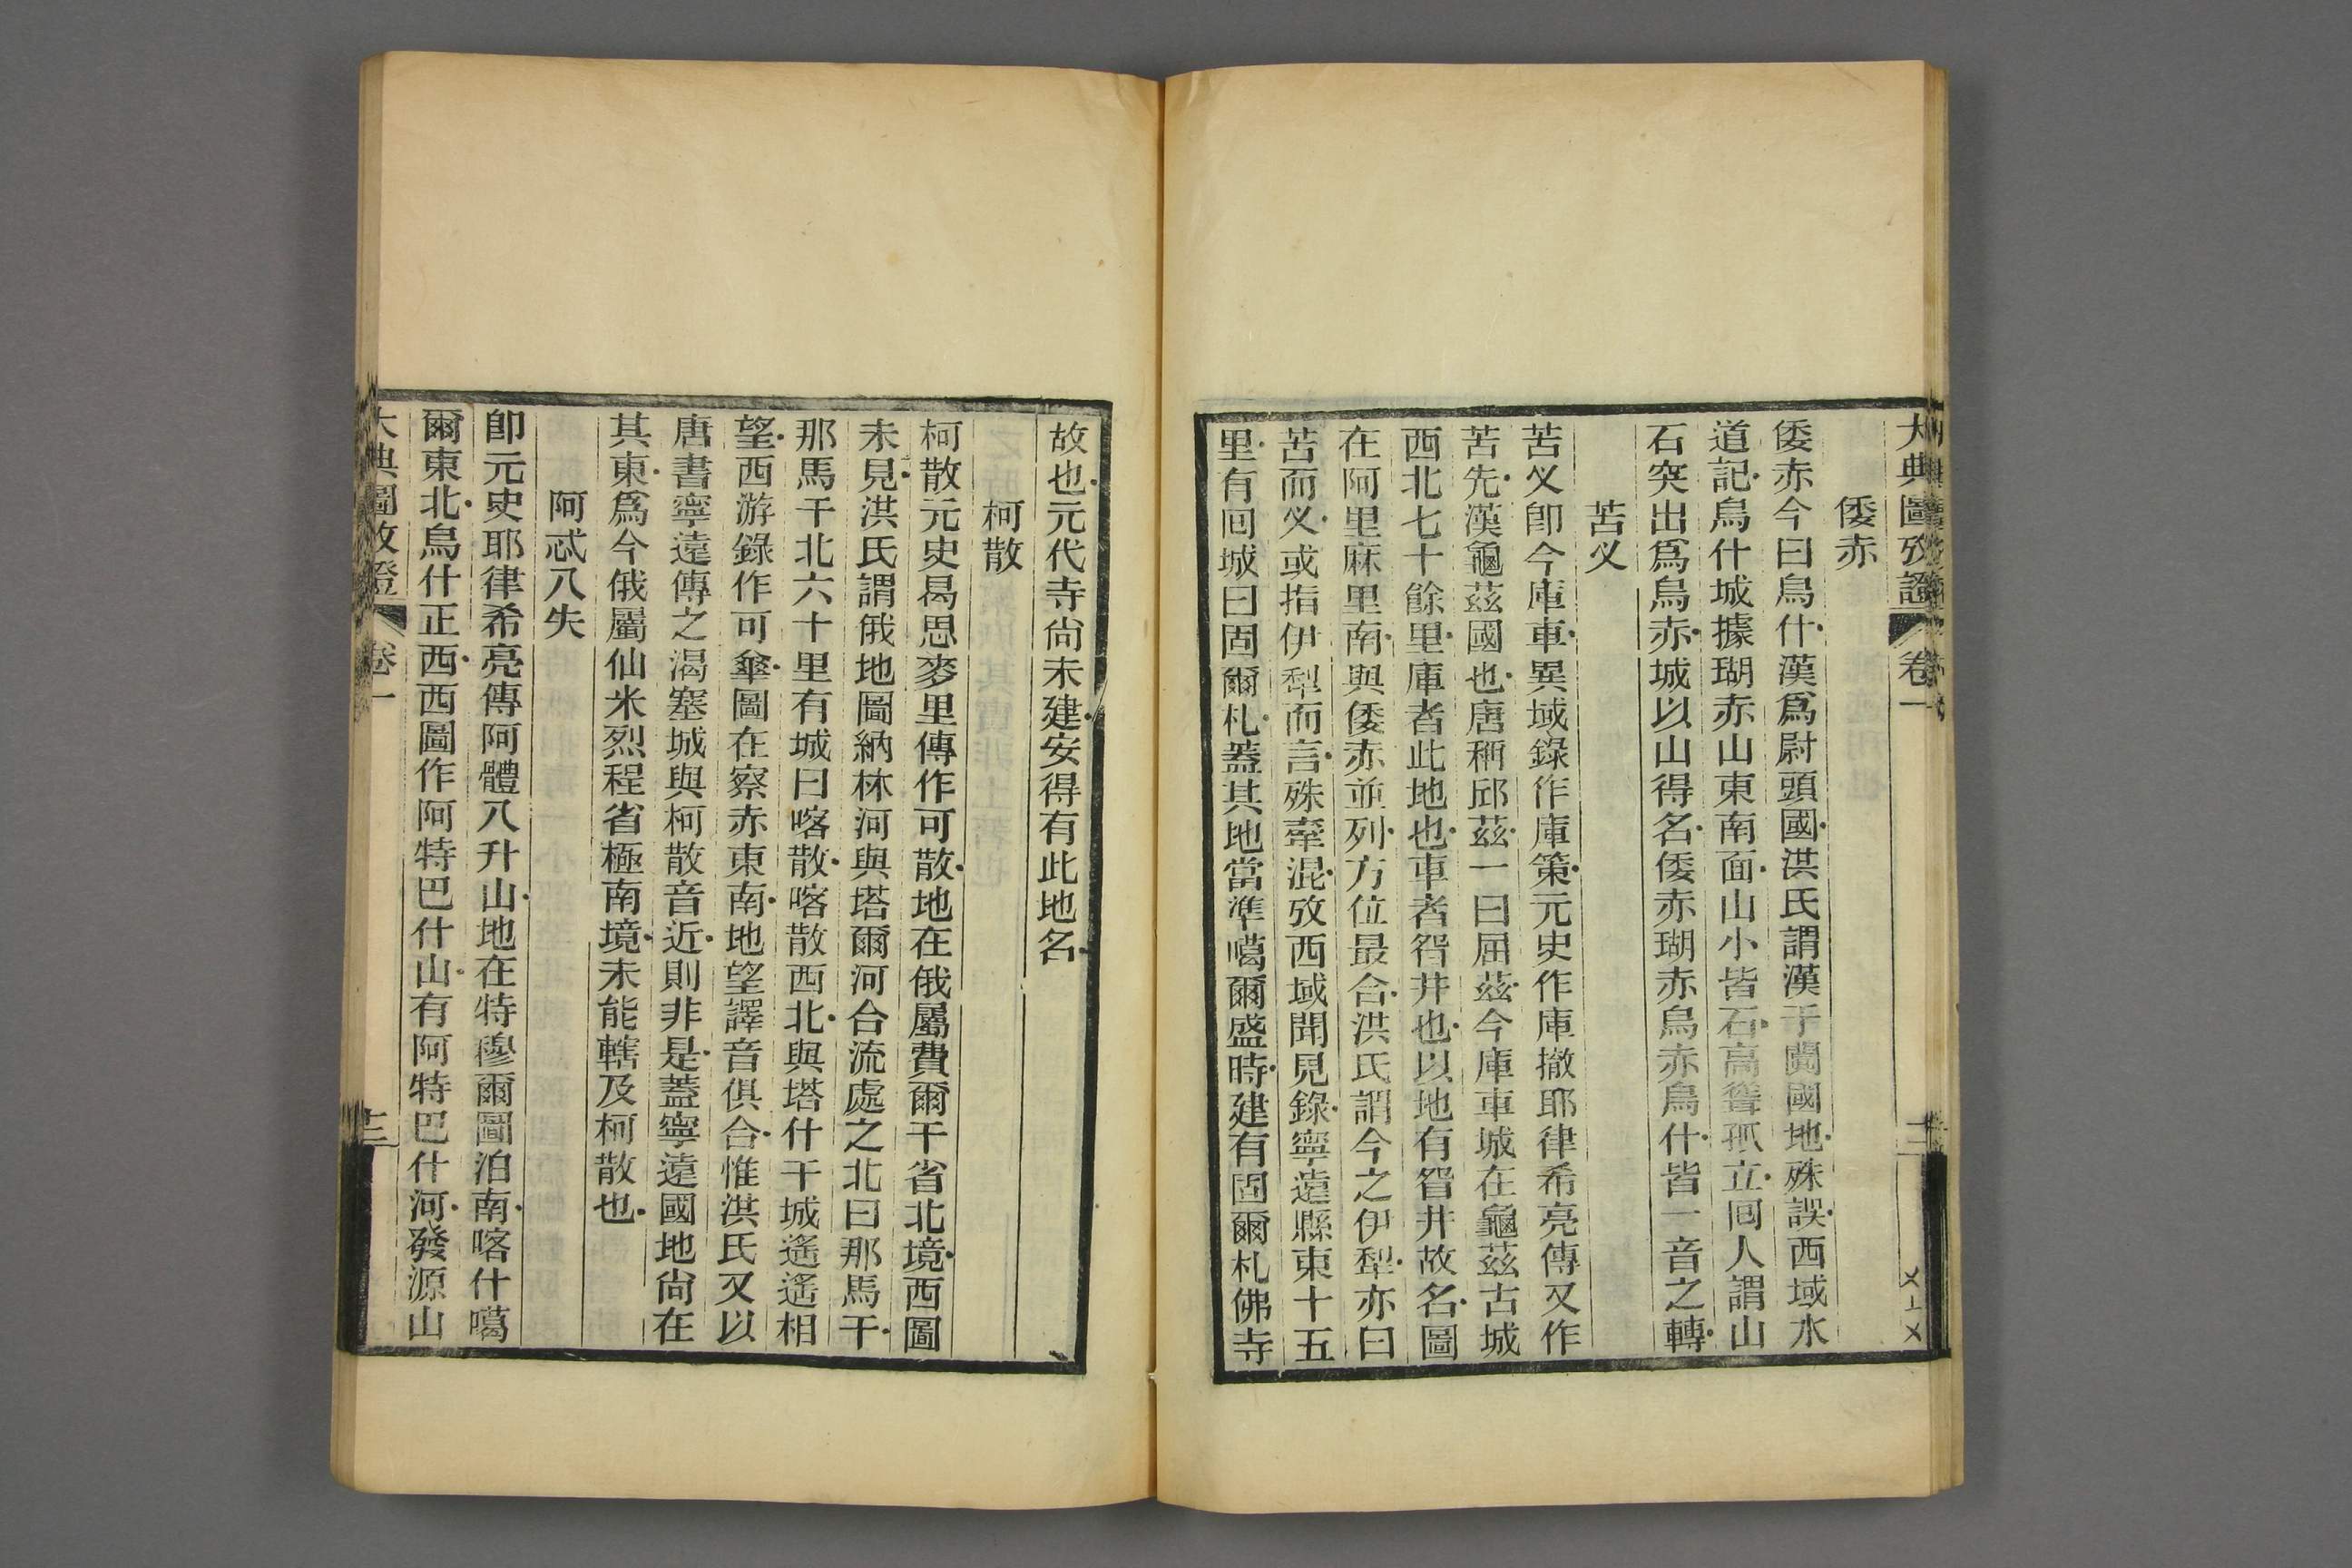 大典圖攷證 卷一 十二
倭赤
倭赤今曰烏什漢爲尉頭國洪氏謂漢于闐國地殊誤西域水
道記烏什城據瑚赤山東南面山小皆石高聳孤立回人謂山
石突出爲烏赤城以山得名倭赤瑚赤烏赤烏什皆一音之轉
苦义
苦义卽今庫車異域錄作庫策元史作庫撤耶律希亮傳又作
苦先漢龜茲國也唐稱邱茲一曰屈茲今庫車城在龜茲古城
西北七十餘里庫者此地也車者眢井也以地有眢井故名圖
在阿里麻里南與倭赤並列方位最合洪氏謂今之伊犁亦曰
苦而义或指伊犁而言殊牽混攷西域聞見錄寧遠縣東十五
里有回城曰固爾札蓋其地當準噶爾盛時建有固爾札佛寺
故也元代寺尙未建安得有此地名
柯散
柯散元史曷思麥里傳作可散地在俄屬費爾干省北境西圖
未見洪氏謂俄地圖納林河與塔爾河合流處之北曰那馬干
那馬干北六十里有城曰喀散喀散西北與塔什干城遙遙相
望西游錄作可傘圖在察赤東南地望譯音俱合惟洪氏又以
唐書寧遠傳之渴塞城與柯散音近則非是蓋寧遠國地尙在
其東爲今俄屬仙米烈程省極南境未能轄及柯散也
阿忒八失
卽元史耶律希亮傳阿體八升山地在特穆爾圖泊南喀什噶
爾東北烏什正西西圖作阿特巴什山有阿特巴什河發源山
大典圖攷證 卷一 十二